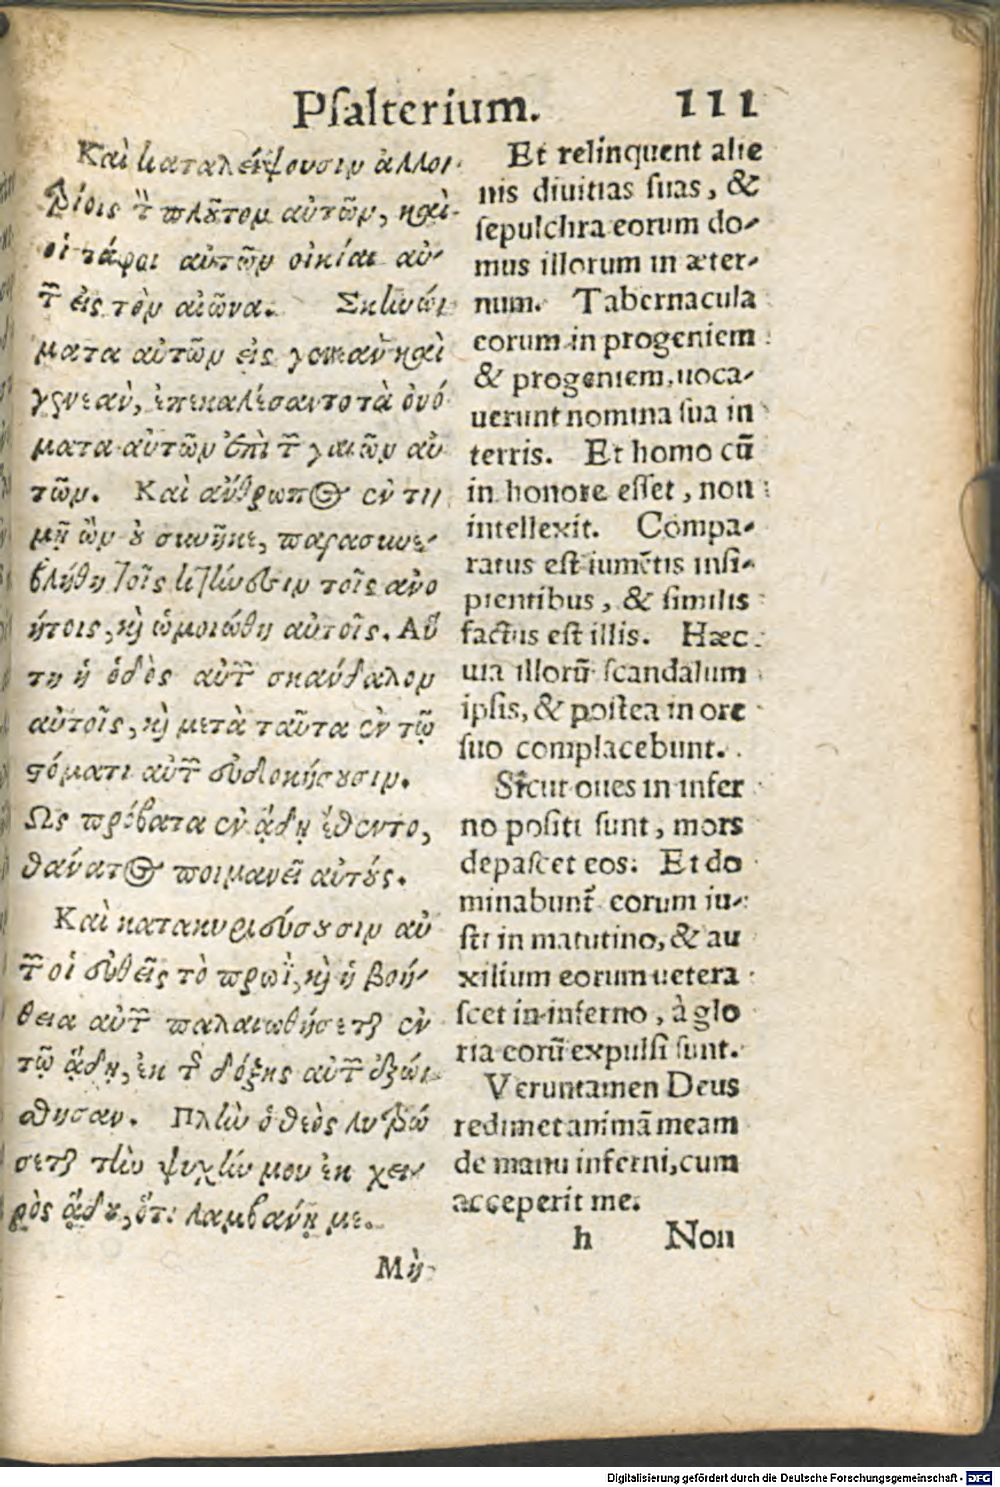 Psalterium. 111
Καὶ καταλείψουσιν ἀλλοτ
ρίοις τ̃ πλοῦτον αὐτῶν, καὶ
οἱ τάφοι αὐτῶν οἰκίαι αὐ-
τ̃ εἰς τὸν αἰῶνα. Σκηνώ
ματα αὐτῶν εἰς γενεὰν καὶ
γενεάν, ἐπεκαλέσαντο τὰ ὀνό
ματα αὐτῶν ἐπὶ τ̃ γαιῶν αὐ
τῶν. Καὶ ἄνθρωπος ἐν τι
μῇ ὢν οὐ συνῆκε, παρασυνε-
βλήθη τοῖς κτήνεσιν τοῖς ἀνο
ήτοις, καὶ ὡμοιώθη αὐτοῖς. Αὕ
τη ἡ ὁδὸς αὐτ̃ σκάνδαλον
αὐτοῖς, καὶ μετὰ ταῦτα ἐν τῷ
στόματι αὐτ̃ εὐδοκήσουσιν.
Ὡς πρόβατα ἐν ᾅδῃ ἔθεντο,
θάνατος ποιμανεῖ αὐτούς.
Καὶ κατακυριεύσουσιν αὐ
τ̃ οἱ εὐθεῖς τὸ πρωὶ, καὶ ἡ βοή-
θεια αὐτ̃ παλαιωθήσεται ἐν
τῷ ᾅδῃ, ἐκ τ̃ δόξης αὐτ̃ ἐξώ
σθησαν. Πλὴν ὁ θεὸς λυτρώ
σεται τὴν ψυχήν μου ἐκ χει-
ρὸς ᾅδου, ὅτι λαμβάνῃ με.
Μὴ
Et relinquent alie
nis diuitias suas, &
sepulchra eorum do-
mus illorum in æter-
num. Tabernacula
eorum in progeniem
& progeniem, uoca-
uerunt nomina sua in
terris. Et homo cū
in honore esset, non
intellexit. Compa-
ratus est iumētis insi-
pientibus, & similis
factus est illis. Hæc
uia illorū scandalum
ipsis, & postea in ore
suo complacebunt.
Sicut oues in infer
no positi sunt, mors
depascet eos. Et do
minabunt̃ eorum iu-
sti in matutino, & au
xilium eorum uetera
scet in inferno, à glo
ria eorū expulsi sunt.
Veruntamen Deus
redimet animā meam
de manu inferni, cum
acceperit me.
h Non
Digitalisierung gefördert durch die Deutsche Forschungsgemeinschaft - DFG